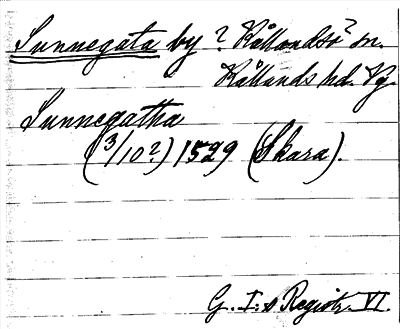 Sunnegata by ? Kållandsö sn.
Kållands hd. Vg.
Sunnegatha
(3/10?) 1529 (Skara).
G. I:s Registr. VI.